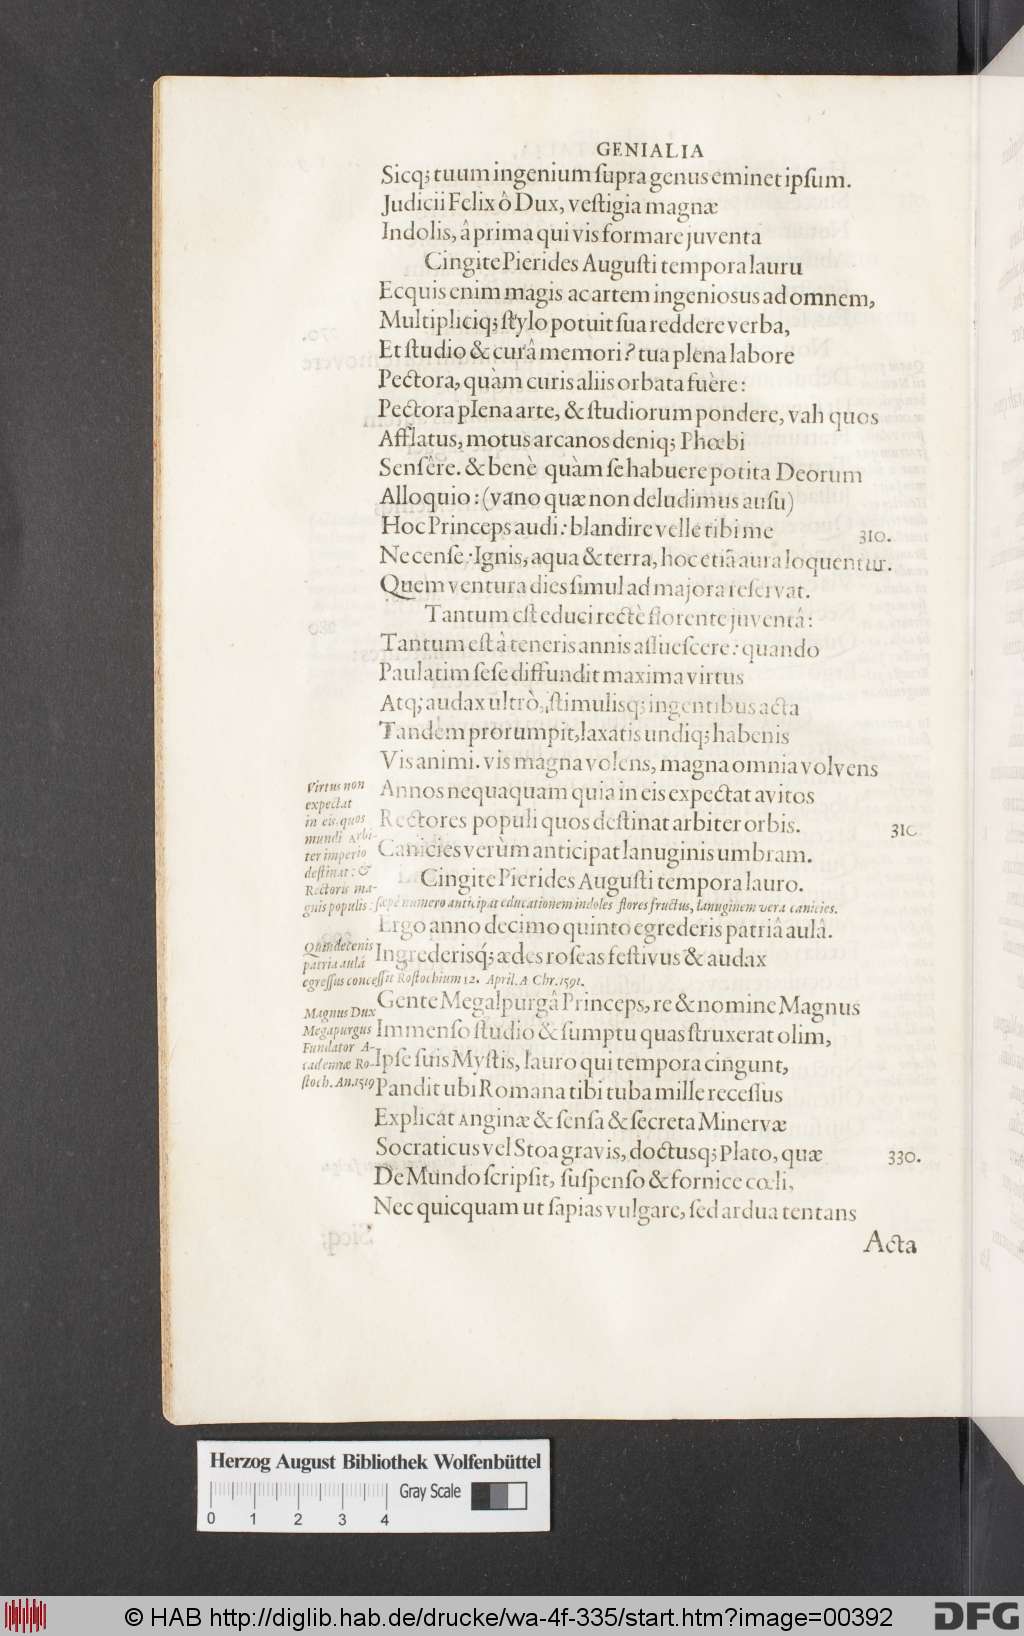 GENIALIA
Sicq; tuum ingenium ſupra genus eminet ipſum.
Judicii Felix ô Dux, veſtigia magnæ
Indolis, â prima qui vis formare juventa
Cingite Pierides Auguſti tempora lauru
Ecquis enim magis ac artem ingenioſus ad omnem,
Multipliciq; ſtylo potuit ſua reddere verba,
Et ſtudio & curâ memori? tua plena labore
Pectora, quàm curis aliis orbata fuère:
Pectora plena arte, & ſtudiorum pondere, vah quos
Afflatus, motus arcanos deniq; Phœbi
Senſêre. & benè quàm ſe habuere potita Deorum
Alloquio: (vano quæ non deludimus auſu)
Hoc Princeps audi: blandire velle tibi me 310.
Ne cenſe: Ignis, aqua & terra, hoc etiã aura loquentur.
Quem ventura dies ſimul ad majora reſervat.
Tantum eſt educi rectè florente juventâ:
Tantum eſt â teneris annis aſſueſcere: quando
Paulatim ſeſe diffundit maxima virtus
Atq; audax ultrò, ſtimulisq; ingentibus acta
Tandem prorumpit, laxatis undiq; habenis
Vis animi. vis magna volens, magna omnia volvens
Virtus non expectat in eis, quos mundi Arbiter imperio deſtinat: & Rectoris ma-
Annos nequaquam quia in eis expectat avitos
Rectores populi quos deſtinat arbiter orbis. 310.
Canicies verùm anticipat lanuginis umbram.
Cingite Pierides Auguſti tempora lauro.
gnis populis: ſæpe numero anticipat educationem indoles flores fructus, lanuginem vera canicies.
Ergo anno decimo quinto egrederis patriâ aulâ.
Quindecenis patria aulâ
Ingrederisq́; ædes roſeas feſtivus & audax
egreſſus conceſſit Roſtochium 12. April. A Chr. 1591.
Gente Megalpurgâ Princeps, re & nomine Magnus
Magnus Dux Megapurgus Fundator Academiæ Roſtoch. An. 1519
Immenſo ſtudio & ſumptu quas ſtruxerat olim,
Ipſe ſuis Myſtis, lauro qui tempora cingunt,
Pandit ubi Romana tibi tuba mille receſſus
Explicat Anginæ & ſenſa & ſecreta Minervæ
Socraticus vel Stoa gravis, doctusq; Plato, quæ 330.
De Mundo ſcripſit, ſuſpenſo & fornice cœli,
Nec quicquam ut ſapias vulgare, ſed ardua tentans
Acta
Herzog August Bibliothek Wolfenbüttel
Gray Scale
0 1 2 3 4
© HAB http://diglib.hab.de/drucke/wa-4f-335/start.htm?image=00392
DFG